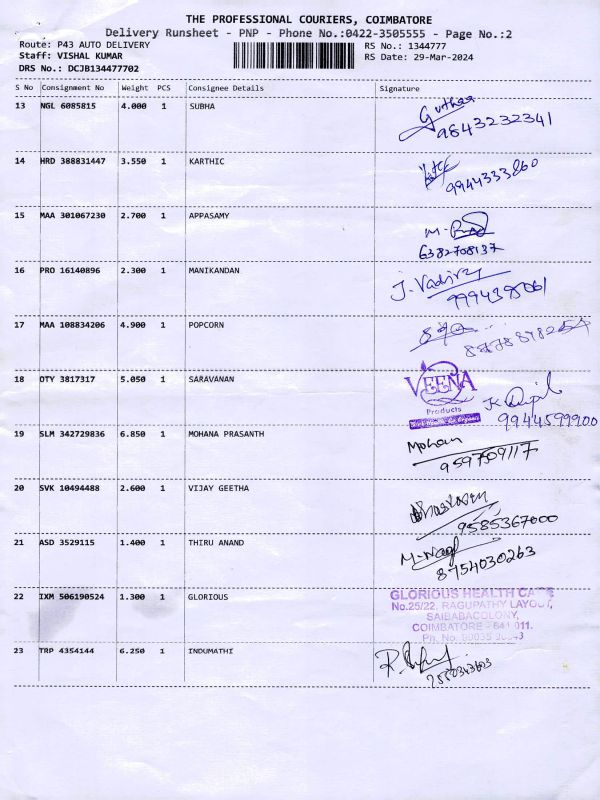 THE PROFESSIONAL COURIERS, COIMBATORE
Delivery Runsheet - PNP - Phone No.:0422-3505555 - Page No.:2
Route: P43 AUTO DELIVERY RS No.: 1344777
Staff: VISHAL KUMAR RS Date: 29-Mar-2024
DRS No.: DCJB134477702
S No Consignment No Weight PCS Consignee Details Signature
13 NGL 6085815 4.000 1 SUBHA
9843232341
14 HRD 388831447 3.550 1 KARTHIC
9944333860
15 MAA 301067230 2.700 1 APPASAMY
6382708137
16 PRO 16140896 2.300 1 MANIKANDAN
17 MAA 108834206 4.900 1 POPCORN
18 OTY 3817317 5.050 1 SARAVANAN
VEENA
Products
9944599900
19 SLM 342729836 6.850 1 MOHANA PRASANTH
Mohan
9597509117
20 SVK 10494488 2.600 1 VIJAY GEETHA
9585367000
21 ASD 3529115 1.400 1 THIRU ANAND
8754030263
22 IXM 506190524 1.300 1 GLORIOUS
GLORIOUS HEALTH CARE
No.25/22, RAGUPATHY LAYOUT,
SAIBABACOLONY,
COIMBATORE - 641 011.
Ph. No.
23 TRP 4354144 6.250 1 INDUMATHI